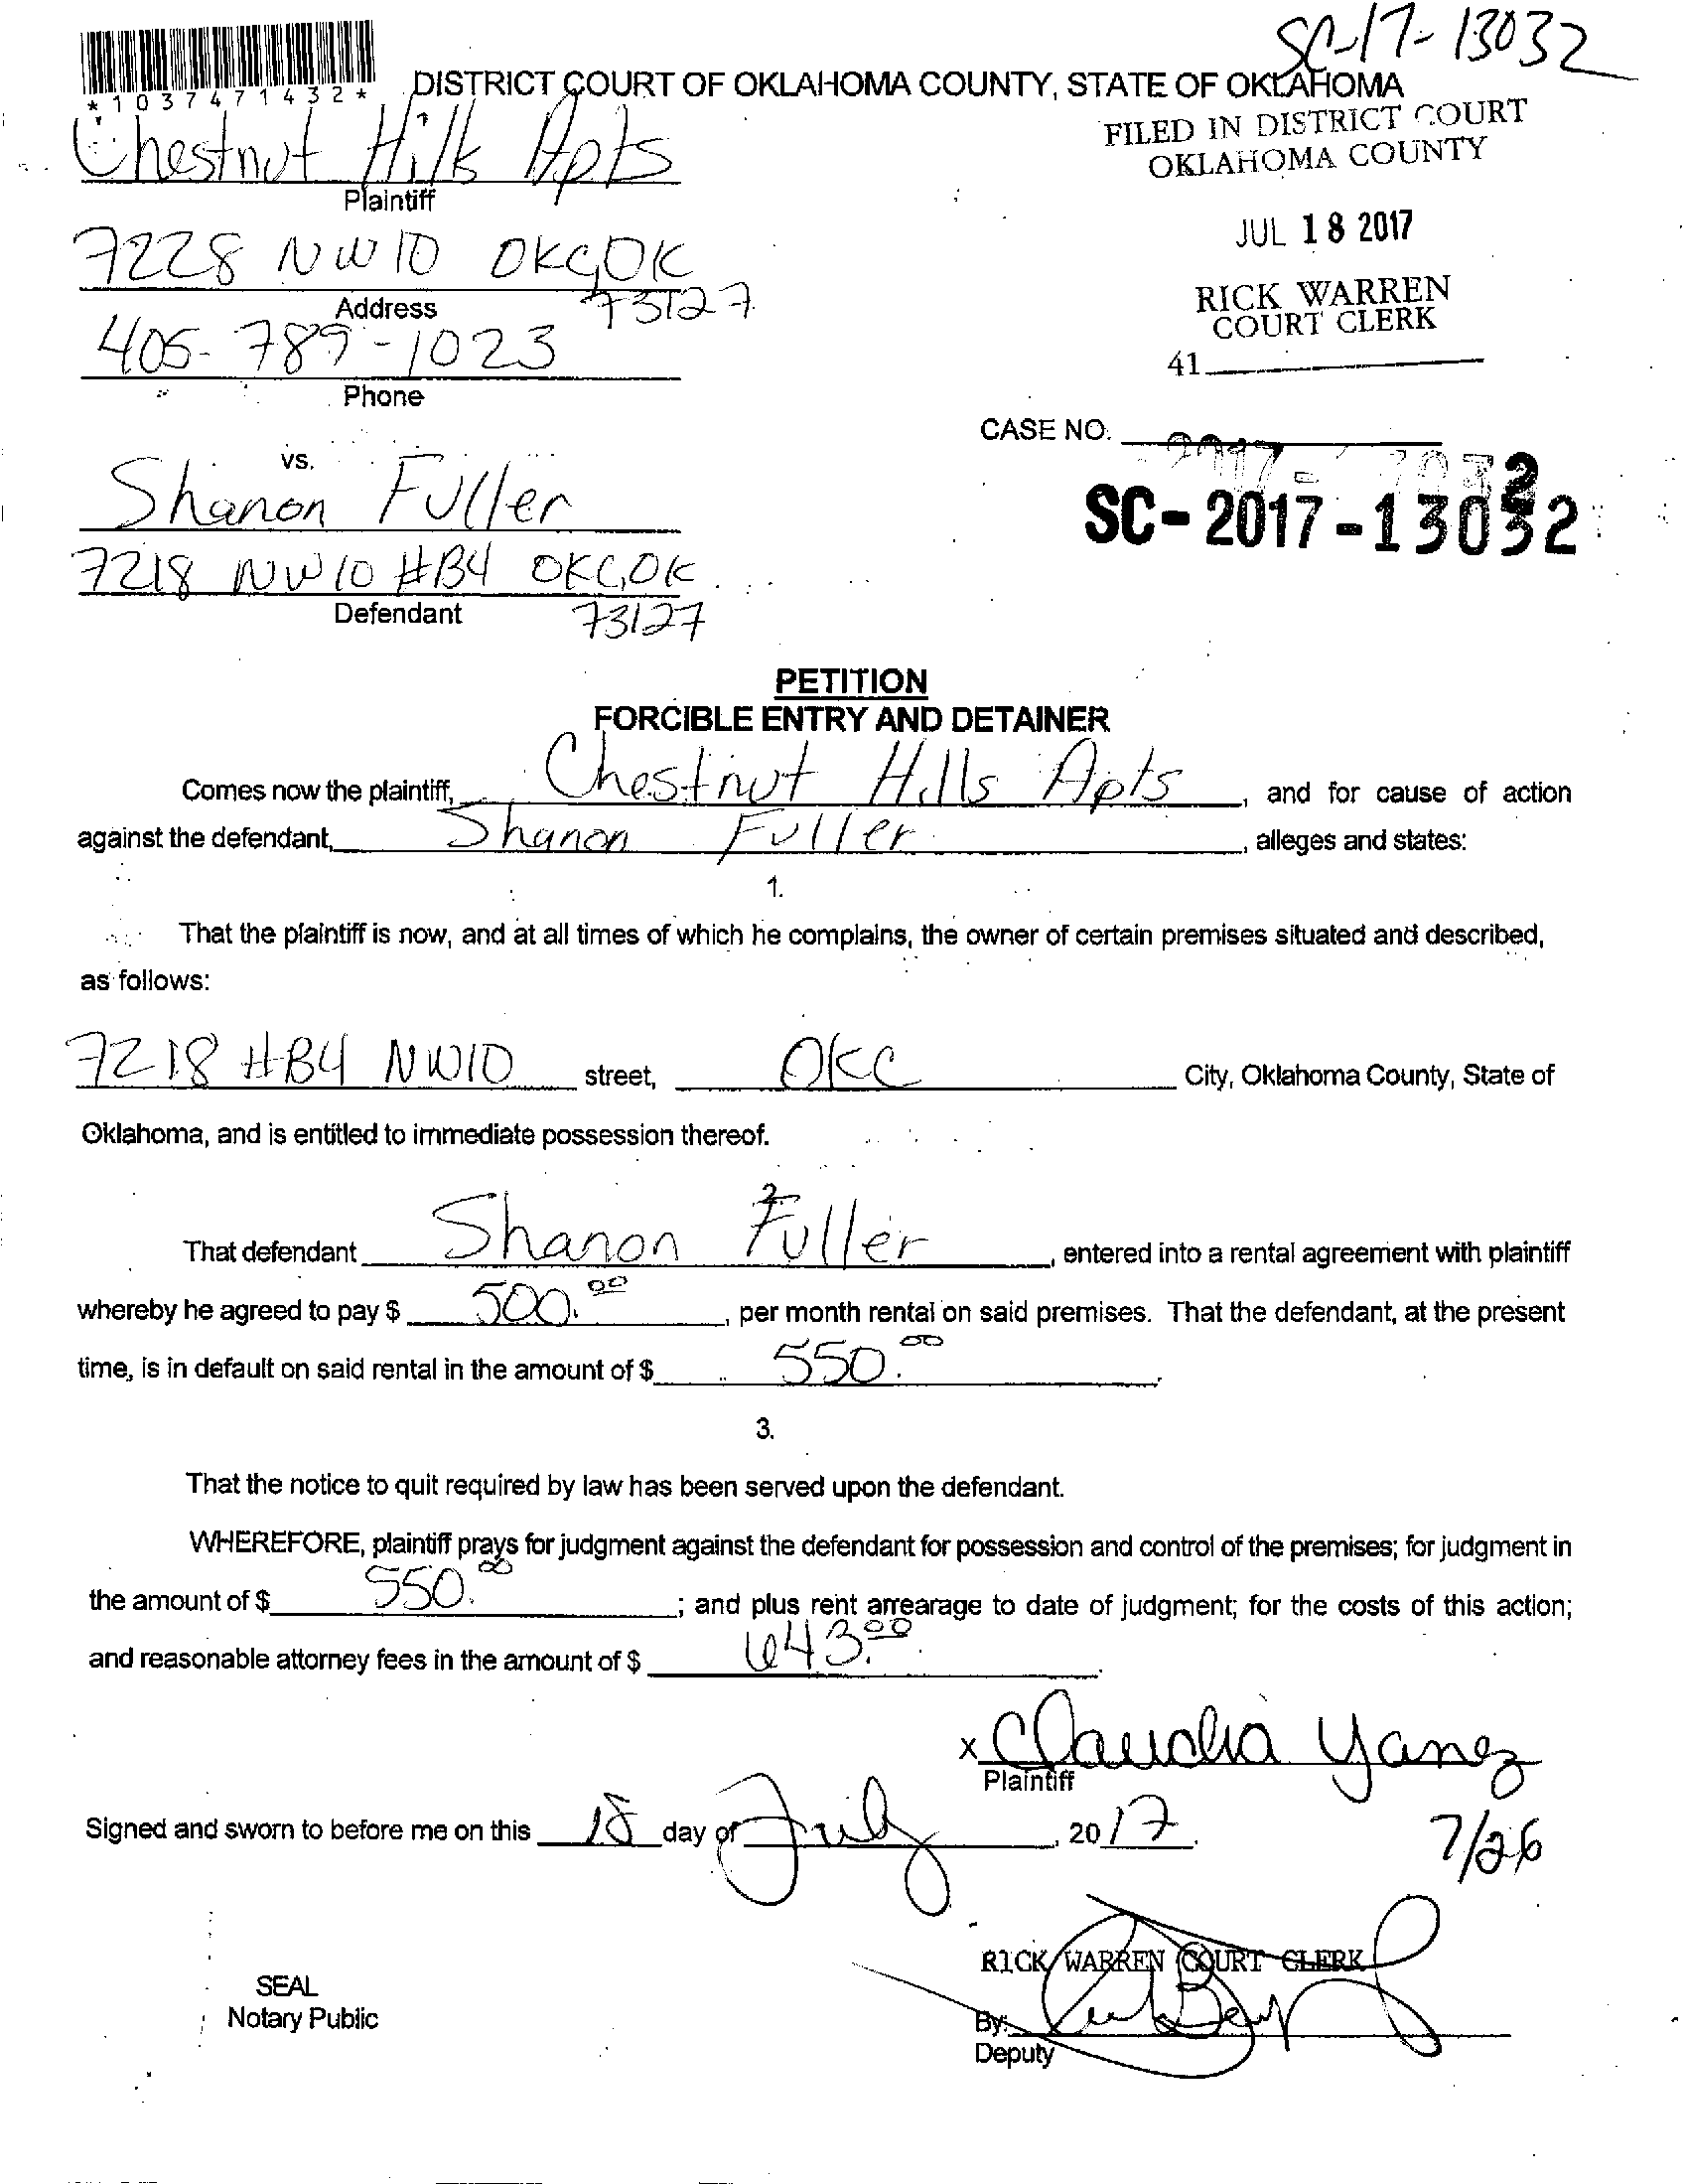 SC-17-13032
*1037471432*
DISTRICT COURT OF OKLAHOMA COUNTY, STATE OF OKLAHOMA
Chestnut Hills Apts
Plaintiff
FILED IN DISTRICT COURT
OKLAHOMA COUNTY
7228 NW 10 OKC, OK
73127
Address
JUL 18 2017
405-789-1023
Phone
RICK WARREN
COURT CLERK
41
CASE NO.
SC-2017-13032
vs.
Shanon Fuller
7218 NW 10 #B4 OKC, OK
73127
Defendant
PETITION
FORCIBLE ENTRY AND DETAINER
Comes now the plaintiff, Chestnut Hills Apts, and for cause of action
against the defendant, Shanon Fuller, alleges and states:
1.
That the plaintiff is now, and at all times of which he complains, the owner of certain premises situated and described,
as follows:
7218 #B4 NW10 street, OKC City, Oklahoma County, State of
Oklahoma, and is entitled to immediate possession thereof.
2.
That defendant Shanon Fuller, entered into a rental agreement with plaintiff
whereby he agreed to pay $ 500.00, per month rental on said premises. That the defendant, at the present
time, is in default on said rental in the amount of $ 550.00.
3.
That the notice to quit required by law has been served upon the defendant.
WHEREFORE, plaintiff prays for judgment against the defendant for possession and control of the premises; for judgment in
the amount of $ 550.00; and plus rent arrearage to date of judgment; for the costs of this action;
and reasonable attorney fees in the amount of $ 643.00.
x Claudia Yanez
Plaintiff
Signed and sworn to before me on this 18 day of July, 2017.
7/26
RICK WARREN COURT CLERK
SEAL
Notary Public
By:
Deputy